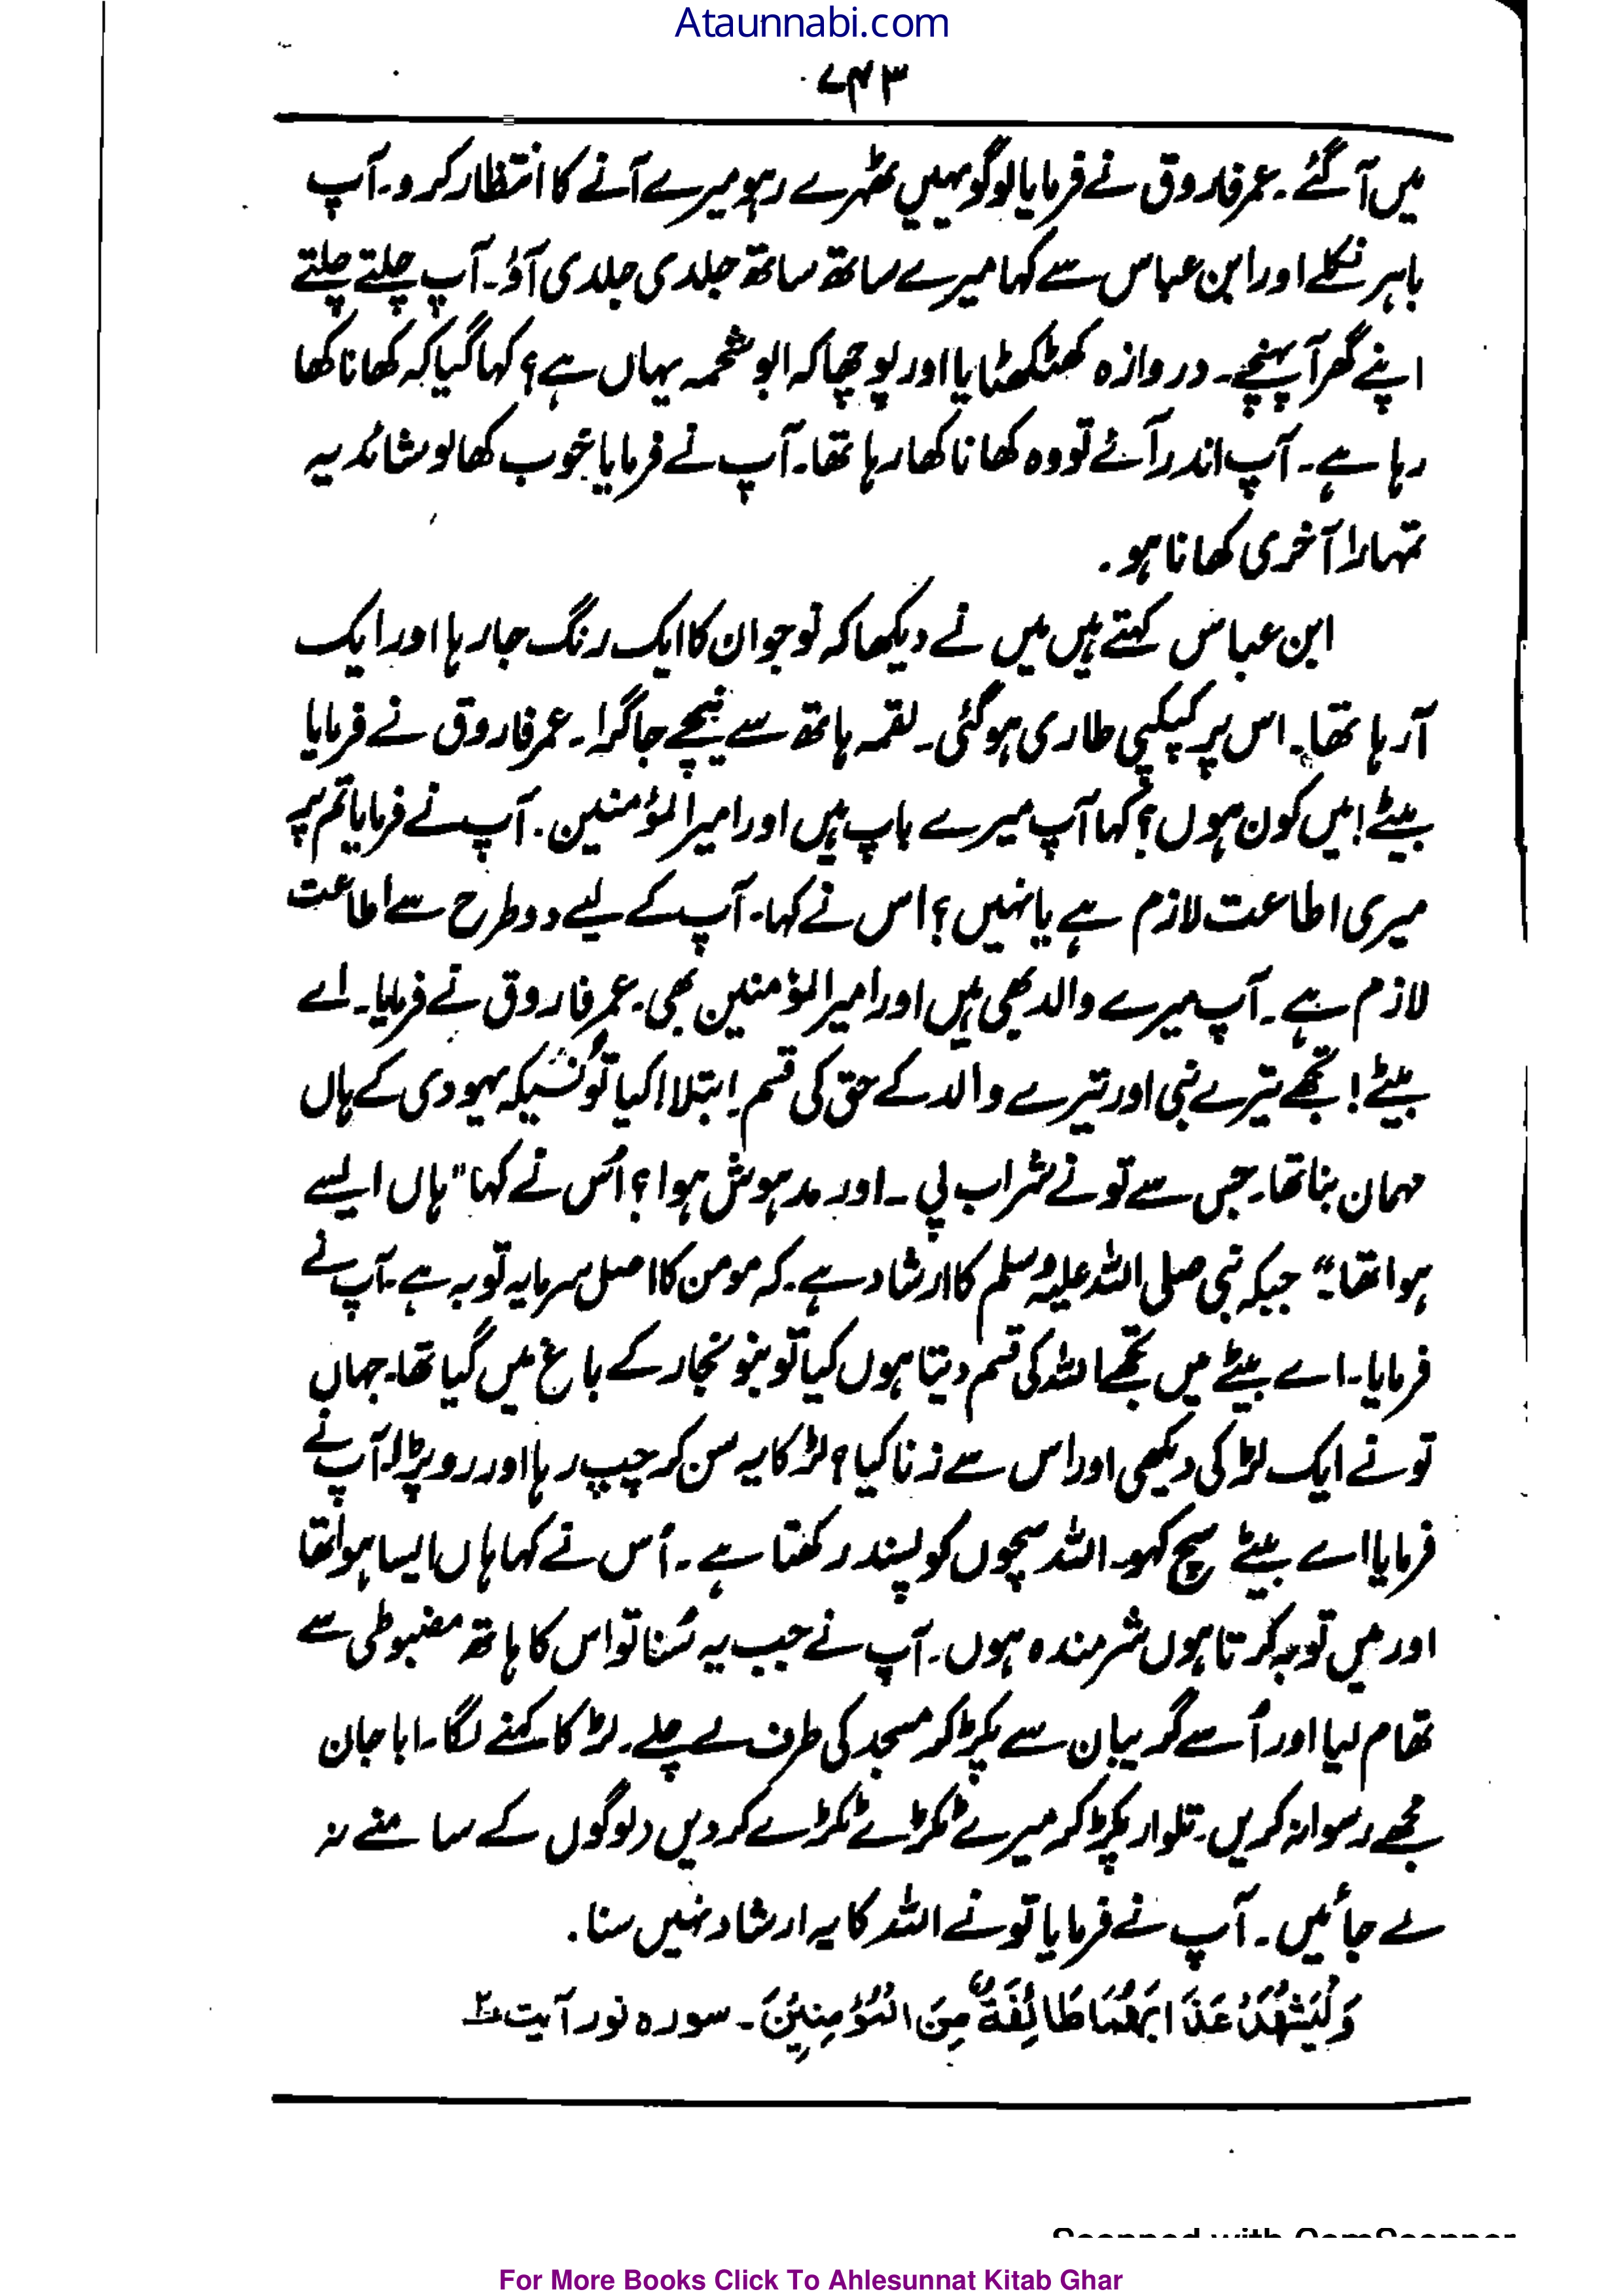 Ataunnabi.com
۷۴۳
میں آ گئے۔ عمر فاروق نے فرمایا لوگو یہیں ٹھہرے رہو میرے آنے کا انتظار کرو۔ آپ
باہر نکلے اور ابن عباس سے کہا میرے ساتھ ساتھ جلدی جلدی آؤ۔ آپ چلتے چلتے
اپنے گھر آ پہنچے۔ دروازہ کھٹکھٹایا اور پوچھا کہ ابو شحمہ یہاں ہے؟ کہا گیا کہ کھانا کھا
رہا ہے۔ آپ اندر آئے تو وہ کھانا کھا رہا تھا۔ آپ نے فرمایا خوب کھا لو شائد یہ
تمہارا آخری کھانا ہو۔
ابن عباس کہتے ہیں میں نے دیکھا کہ نوجوان کا ایک رنگ جا رہا اور ایک
آ رہا تھا۔ اس پر کپکپی طاری ہو گئی۔ لقمہ ہاتھ سے نیچے جا گرا۔ عمر فاروق نے فرمایا
بیٹے! میں کون ہوں؟ کہا آپ میرے باپ ہیں اور امیرالمؤمنین۔ آپ نے فرمایا تم پر
میری اطاعت لازم ہے یا نہیں؟ اس نے کہا۔ آپ کے لیے دو طرح سے اطاعت
لازم ہے۔ آپ میرے والد بھی ہیں اور امیرالمؤمنین بھی۔ عمر فاروق نے فرمایا۔ اے
بیٹے! تجھے تیرے نبی اور تیرے والد کے حق کی قسم۔ ابتلاا کیا تو نُسَیکہ یہودی کے ہاں
مہمان بنا تھا۔ جس سے تو نے شراب پی۔ اور مدہوش ہوا؟ اُس نے کہا "ہاں ایسے
ہوا تھا۔" جبکہ نبی صلی اللہ علیہ وسلم کا ارشاد ہے۔ کہ مومن کا اصل سرمایہ توبہ ہے۔ آپ نے
فرمایا۔ اے بیٹے میں تجھے اللہ کی قسم دیتا ہوں کیا تو بنو نجار کے باغ میں گیا تھا۔ جہاں
تو نے ایک لڑکی دیکھی اور اس سے زنا کیا؟ لڑکا یہ سن کر چپ رہا اور رو پڑا۔ آپ نے
فرمایا اے بیٹے سچ کہو۔ اللہ سچوں کو پسند رکھتا ہے۔ اُس نے کہا ہاں ایسا ہوا تھا
اور میں توبہ کرتا ہوں شرمندہ ہوں۔ آپ نے جب یہ سُنا تو اس کا ہاتھ مضبوطی سے
تھام لیا اور اُسے گریبان سے پکڑ کر مسجد کی طرف لے چلے۔ لڑکا کہنے لگا۔ ابا جان
مجھے رسوا نہ کریں۔ تلوار پکڑ کر میرے ٹکڑے ٹکڑے کر دیں لوگوں کے سامنے نہ
لے جائیں۔ آپ نے فرمایا تو نے اللہ کا یہ ارشاد نہیں سنا۔
وَلْيَشْهَدْ عَذَابَهُمَا طَائِفَةٌ مِنَ الْمُؤْمِنِينَ۔ سورہ نور آیت ۲
For More Books Click To Ahlesunnat Kitab Ghar